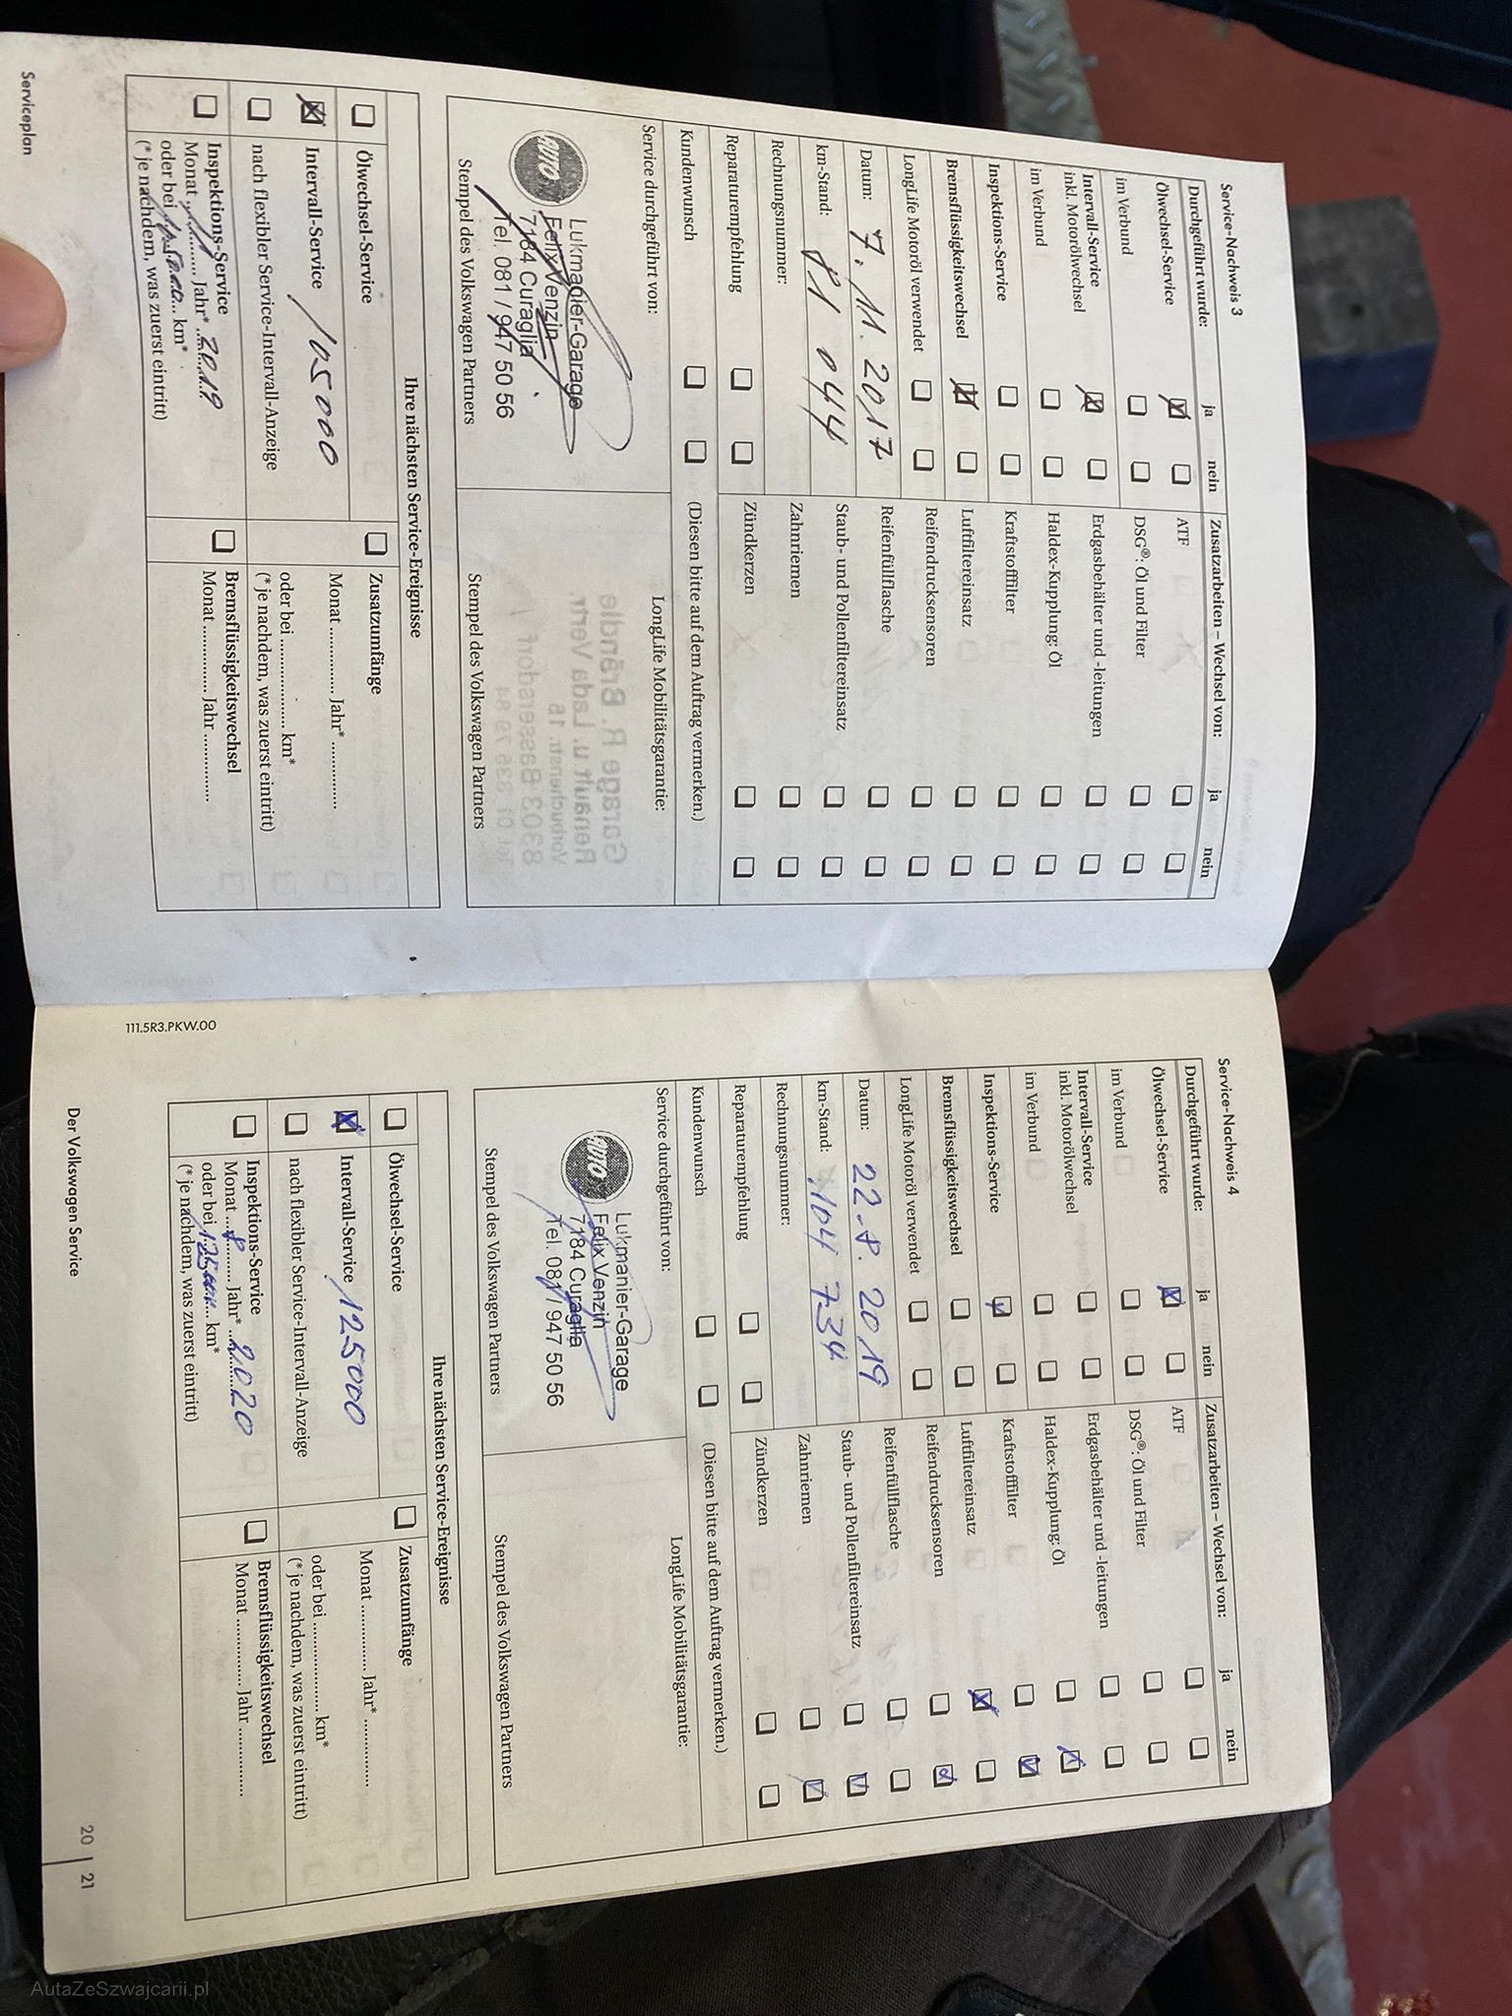 Service-Nachweis 3
Durchgeführt wurde: ja nein
Ölwechsel-Service
im Verbund
Intervall-Service
inkl. Motorölwechsel
im Verbund
Inspektions-Service
Bremsflüssigkeitswechsel
LongLife Motoröl verwendet
Datum: 7. 11. 2017
km-Stand: 81 044
Rechnungsnummer:
Reparaturempfehlung
Kundenwunsch
Zusatzarbeiten – Wechsel von: ja nein
ATF
DSG®: Öl und Filter
Erdgasbehälter und -leitungen
Haldex-Kupplung: Öl
Kraftstofffilter
Luftfiltereinsatz
Reifendrucksensoren
Reifenfüllflasche
Staub- und Pollenfiltereinsatz
Zahnriemen
Zündkerzen
(Diesen bitte auf dem Auftrag vermerken.)
Service durchgeführt von:
AUTO
Lukmanier-Garage
Felix Venzin
7184 Curaglia
Tel. 081 / 947 50 56
Stempel des Volkswagen Partners
LongLife Mobilitätsgarantie:
Stempel des Volkswagen Partners
Ihre nächsten Service-Ereignisse
Ölwechsel-Service
Intervall-Service 105000
nach flexibler Service-Intervall-Anzeige
Inspektions-Service
Monat 11 Jahr* 2019
oder bei km*
(* je nachdem, was zuerst eintritt)
Zusatzumfänge
Monat Jahr*
oder bei km*
(* je nachdem, was zuerst eintritt)
Bremsflüssigkeitswechsel
Monat Jahr
Serviceplan
111.5R3.PKW.00
Service-Nachweis 4
Durchgeführt wurde: ja nein
Ölwechsel-Service
im Verbund
Intervall-Service
inkl. Motorölwechsel
im Verbund
Inspektions-Service
Bremsflüssigkeitswechsel
LongLife Motoröl verwendet
Datum: 22.8. 2019
km-Stand: 104 734
Rechnungsnummer:
Reparaturempfehlung
Kundenwunsch
Zusatzarbeiten – Wechsel von: ja nein
ATF
DSG®: Öl und Filter
Erdgasbehälter und -leitungen
Haldex-Kupplung: Öl
Kraftstofffilter
Luftfiltereinsatz
Reifendrucksensoren
Reifenfüllflasche
Staub- und Pollenfiltereinsatz
Zahnriemen
Zündkerzen
(Diesen bitte auf dem Auftrag vermerken.)
Service durchgeführt von:
AUTO
Lukmanier-Garage
Felix Venzin
7184 Curaglia
Tel. 081 / 947 50 56
Stempel des Volkswagen Partners
LongLife Mobilitätsgarantie:
Stempel des Volkswagen Partners
Ihre nächsten Service-Ereignisse
Ölwechsel-Service
Intervall-Service 125000
nach flexibler Service-Intervall-Anzeige
Inspektions-Service
Monat 8 Jahr* 2020
oder bei km*
(* je nachdem, was zuerst eintritt)
Zusatzumfänge
Monat Jahr*
oder bei km*
(* je nachdem, was zuerst eintritt)
Bremsflüssigkeitswechsel
Monat Jahr
Der Volkswagen Service
20 | 21
AutaZeSzwajcarii.pl